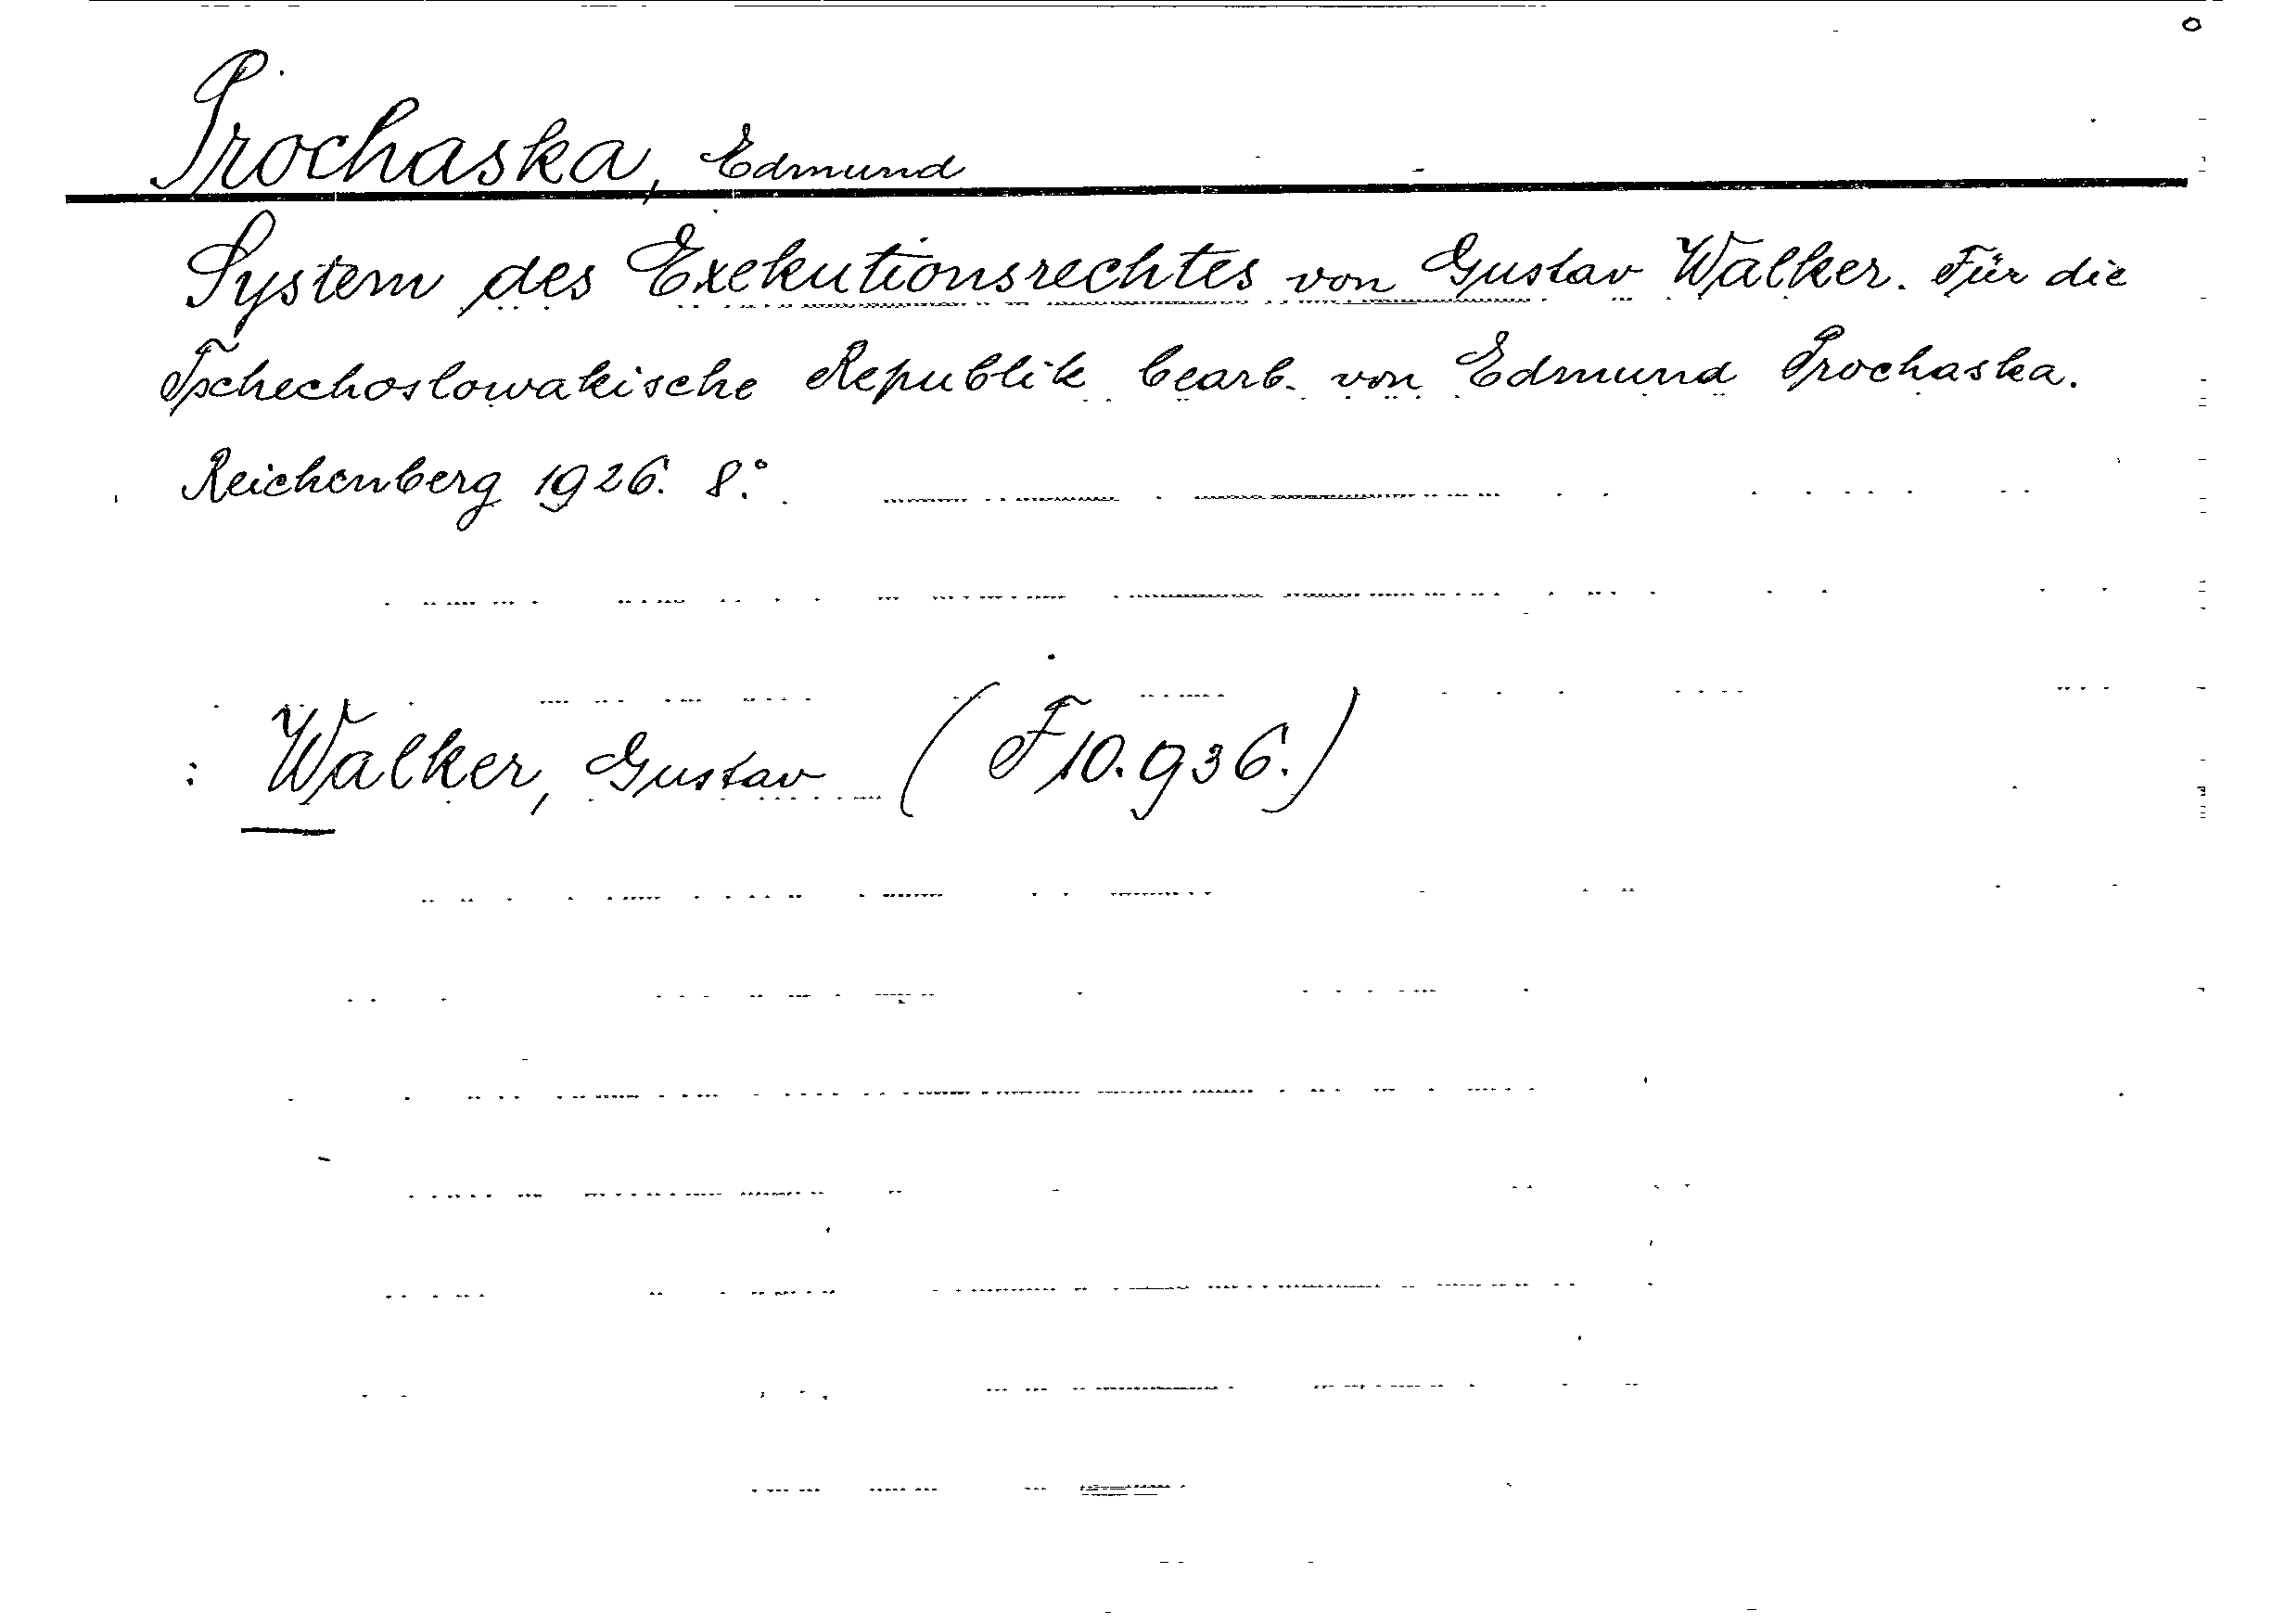 Prochaska, Edmund
System des Exekutionsrechtes von Gustav Walker. Für die
Tschechoslowakische Republik bearb. von Edmund Prochaska.
Reichenberg 1926. 8.°
: Walker, Gustav (F 10.936.)